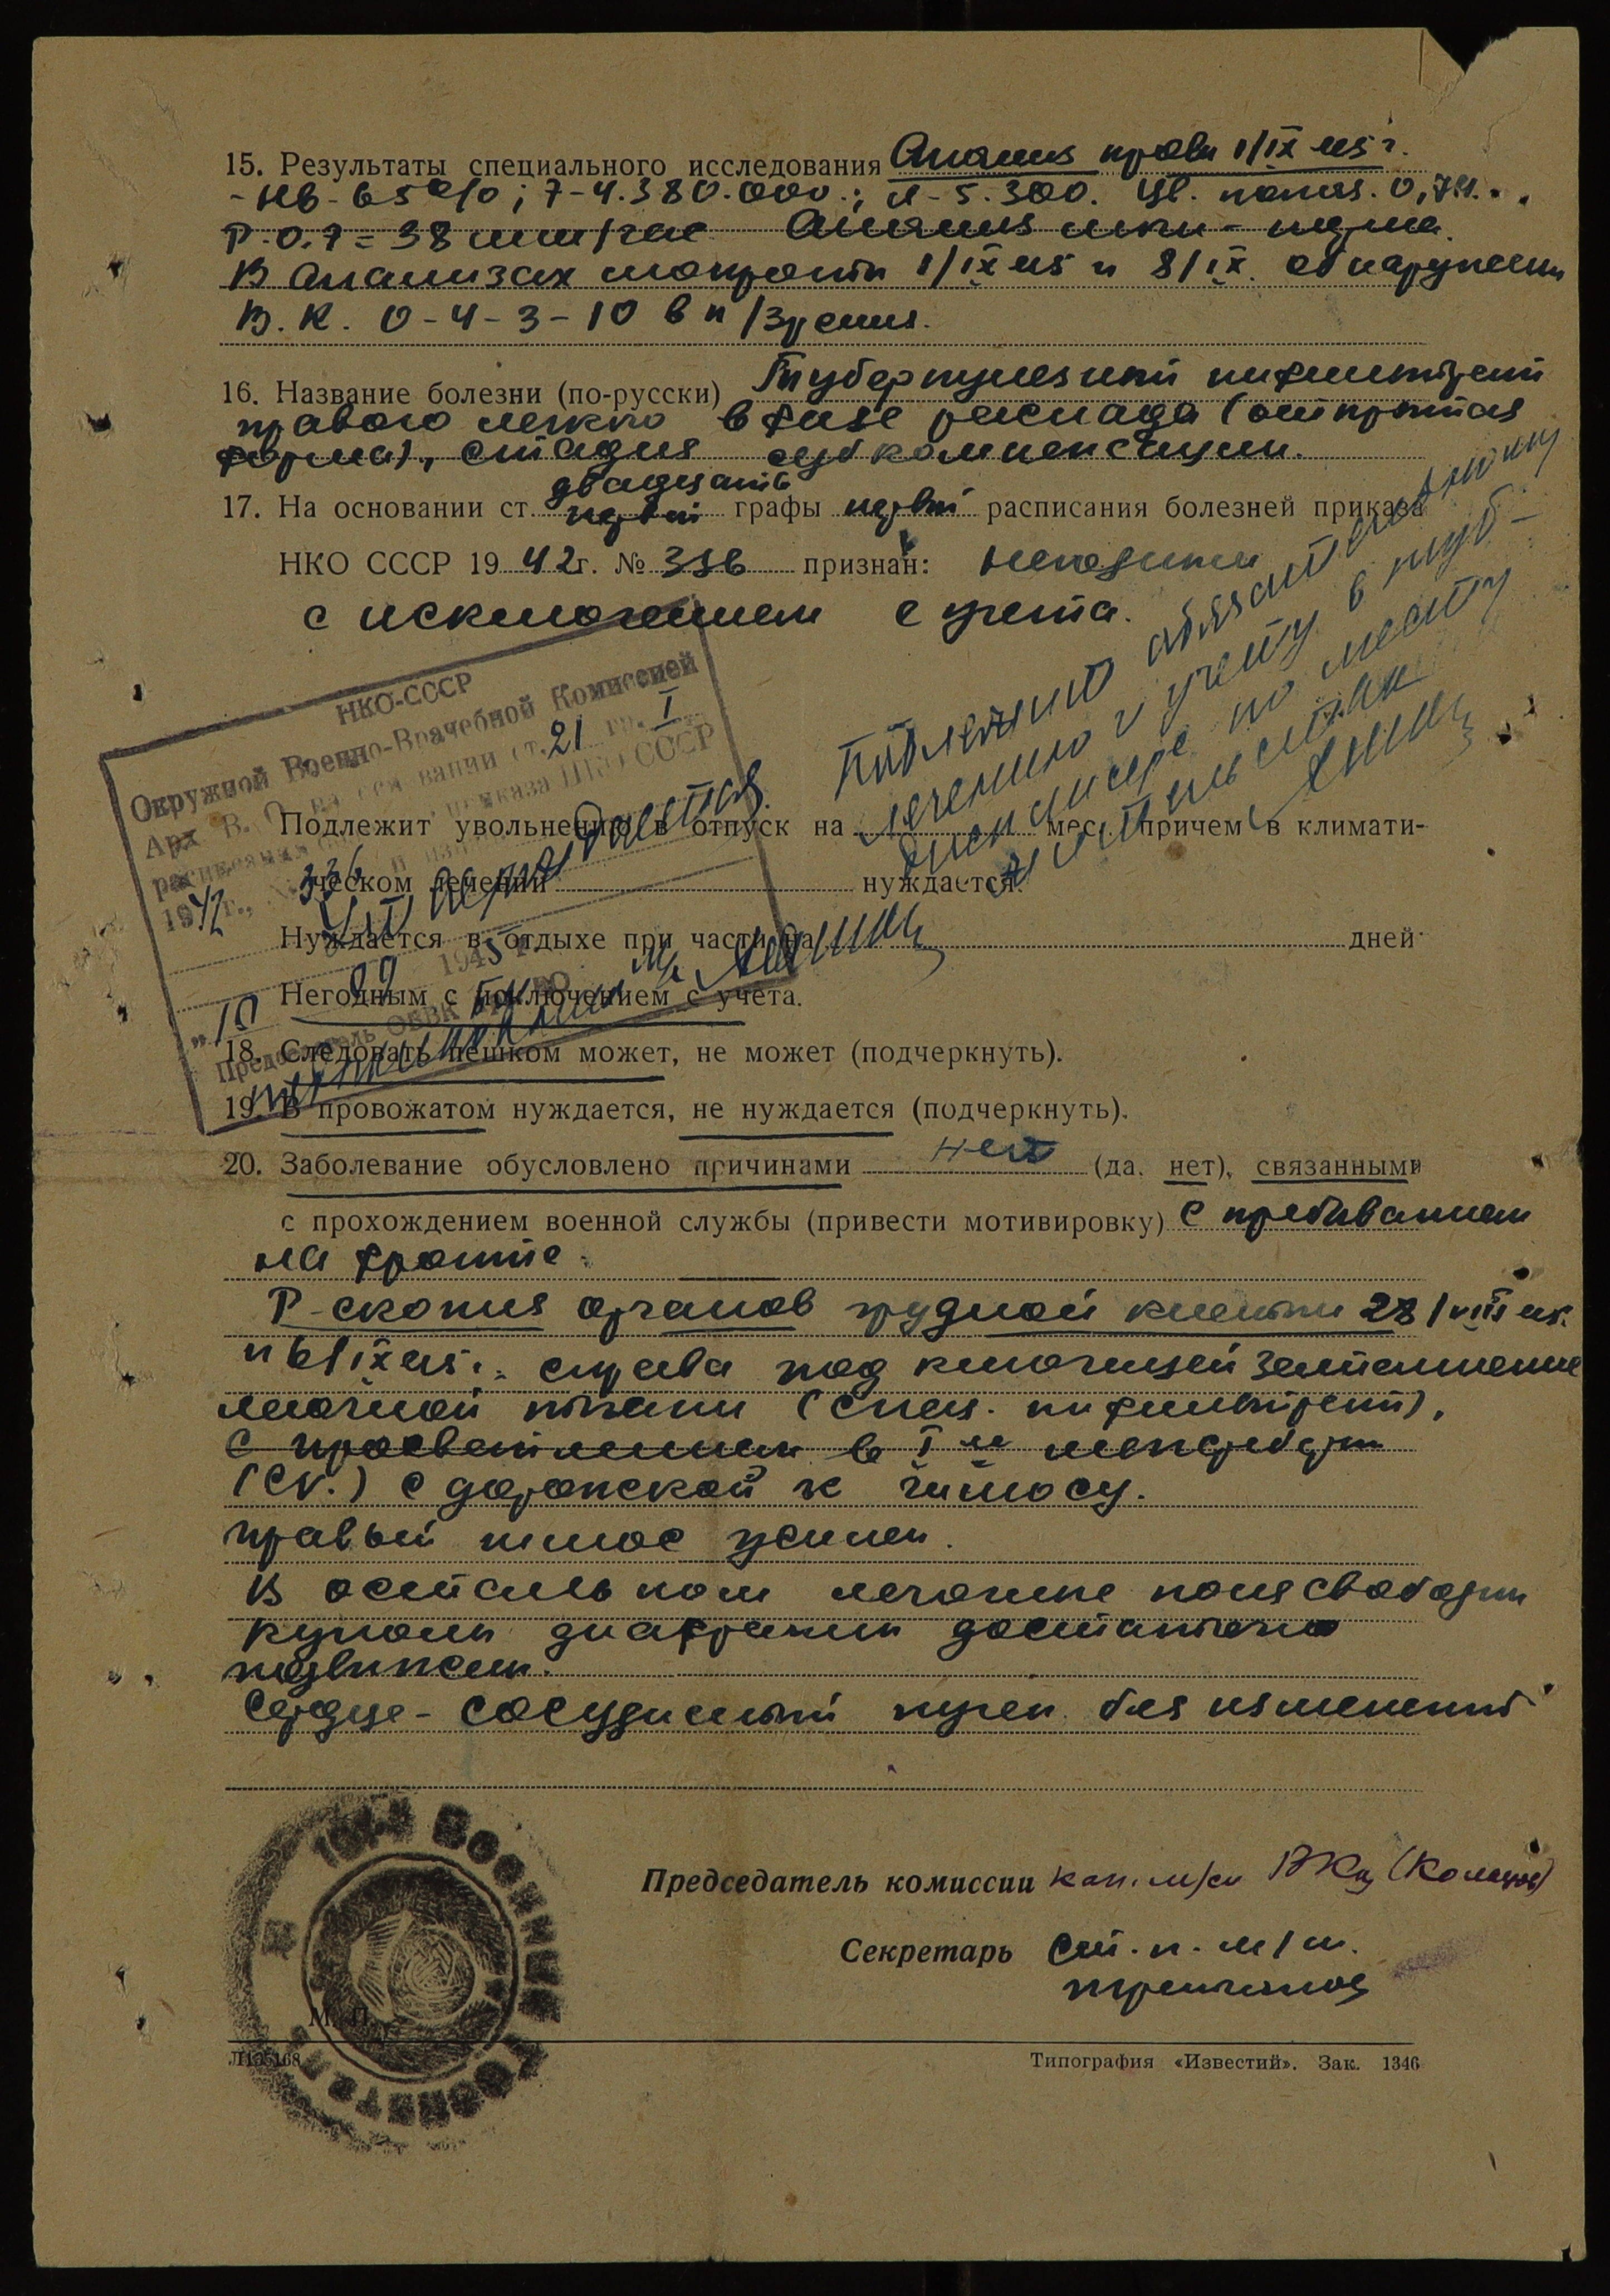 15. Результаты специального исследования Анализ крови 1/IX 45 г.
- Нв - 65%; Э - 4.380.000.; Л - 5.300. Цв. показ. 0,74.
Р.О.Э = 38 mm/час Анализ мочи - норма.
В анализах мокроты 1/IX 45 и 8/IX. обнаружены
В. К. 0-4-3-10 в п/зрения.
16. Название болезни (по-русски) Туберкулезный инфильтрат
правого легкого в фазе распада (открытая
форма), стадия субкомпенсации.
17. На основании ст. двадцать первой графы первой расписания болезней приказа
НКО СССР 1942 г. № 336 признан: негодным
с исключением с учета.
Подлежит обязательному
лечению и учету в туб-
диспансере по месту
жительства
НКО-СССР
Окружной Военно-Врачебной Комиссией
Арх. В. О. на основании ст. 21 гр. I
расписания приказа НКО СССР
1942 г., № 336
утверждается.
10 09 1945
Председатель ОВВК
Подлежит увольнению в отпуск на мес. причем в климати-
ческом лечении нуждается
Нуждается в отдыхе при части на дней
Негодным с исключением с учета.
18. Следовать пешком может, не может (подчеркнуть).
19. В провожатом нуждается, не нуждается (подчеркнуть).
20. Заболевание обусловлено причинами нет (да, нет), связанными
с прохождением военной службы (привести мотивировку) с пребыванием
на фронте.
Р-скопия органов грудной клетки 28/VIII 45.
и 6/IX 45 г. справа под ключицей затемнение
легочной ткани (спец. инфильтрат),
с просветлением в I м межреберьи
(CV.) с дорожкой к хилюсу.
Правый хилюс усилен.
В остальном легочные поля свободны
Куполы диафрагмы достаточно
подвижны.
Сердце-сосудистый пучек без изменений
Председатель комиссии кап. м/сл
Секретарь Ст. л. м/с.
М. П.
Л105168 Типография «Известий». Зак. 1346